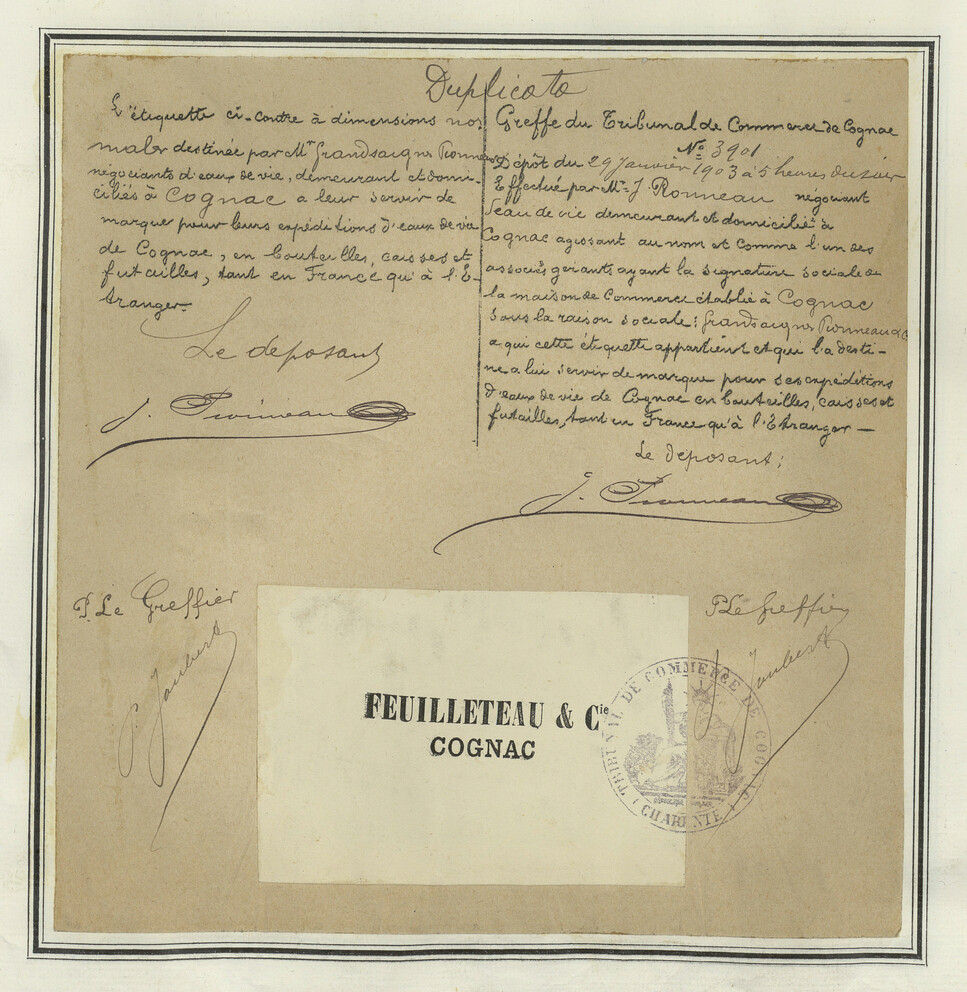 Duplicata
L'étiquette ci-contre à dimensions nor
males destinée par Mr Grandsaignes Pionneau
négociants d'eaux de vie, demeurant et domi-
ciliés à Cognac a leur servir de
marque pour leurs expéditions d'eaux de vie
de Cognac, en bouteilles, caisses et
futailles, tant en France qu'à l'E-
tranger.
Le déposant
J. Pionneau
Greffe du Tribunal de Commerce de Cognac
No 3901
Dépôt du 29 Janvier 1903 à 5 heures du soir
Effectué par Mr J. Pionneau négociant
d'eau de vie demeurant et domicilié à
Cognac agissant au nom et comme l'un des
associés gérants ayant la signature sociale de
la maison de Commerce établie à Cognac
sous la raison sociale: Grandsaignes Pionneau & C
a qui cette étiquette appartient et qui l'a desti-
ne a lui servir de marque pour ses expéditions
d'eaux de vie de Cognac en bouteilles, caisses et
futailles, tant en France qu'à l'Etranger—
Le déposant:
J. Pionneau
P. Le Greffier
P. Joubert
P Le Greffier
Joubert
FEUILLETEAU & Cie
COGNAC
TRIBUNAL DE COMMERCE DE COGNAC
(CHARENTE)